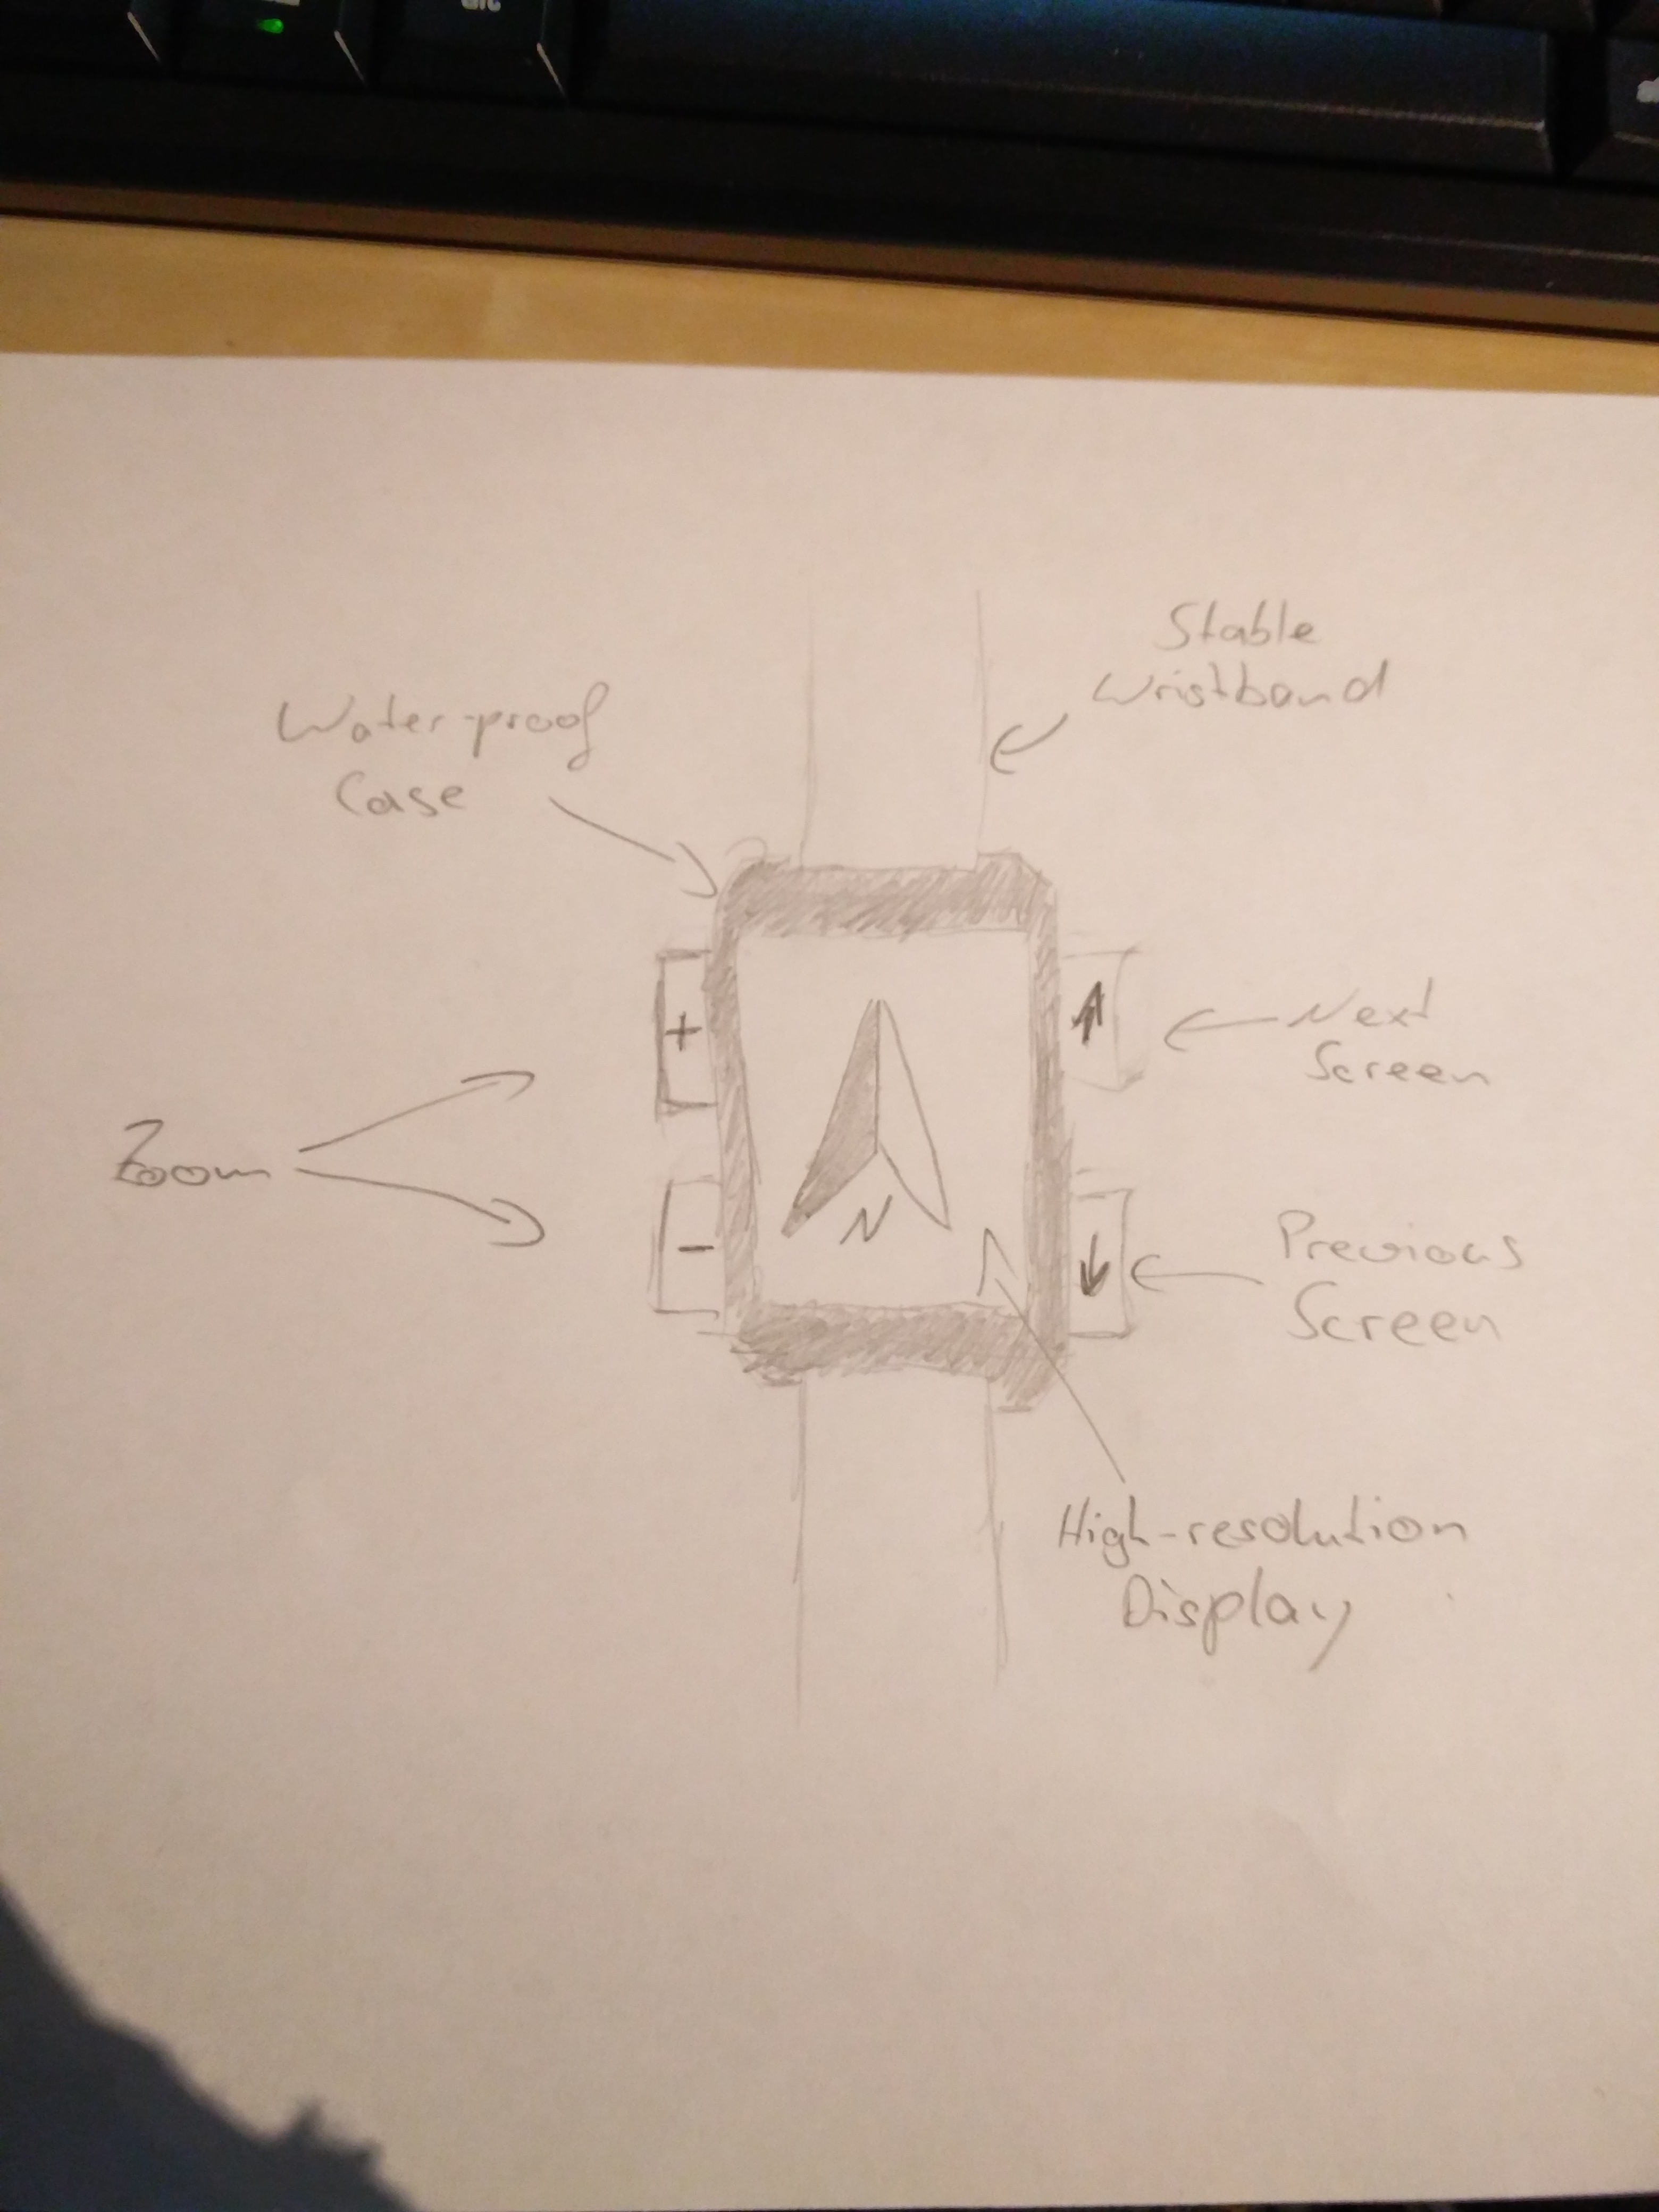 Stable
Wristband
Water-proof
Case
+
Next
Screen
Zoom
-
N
Previous
Screen
High-resolution
Display